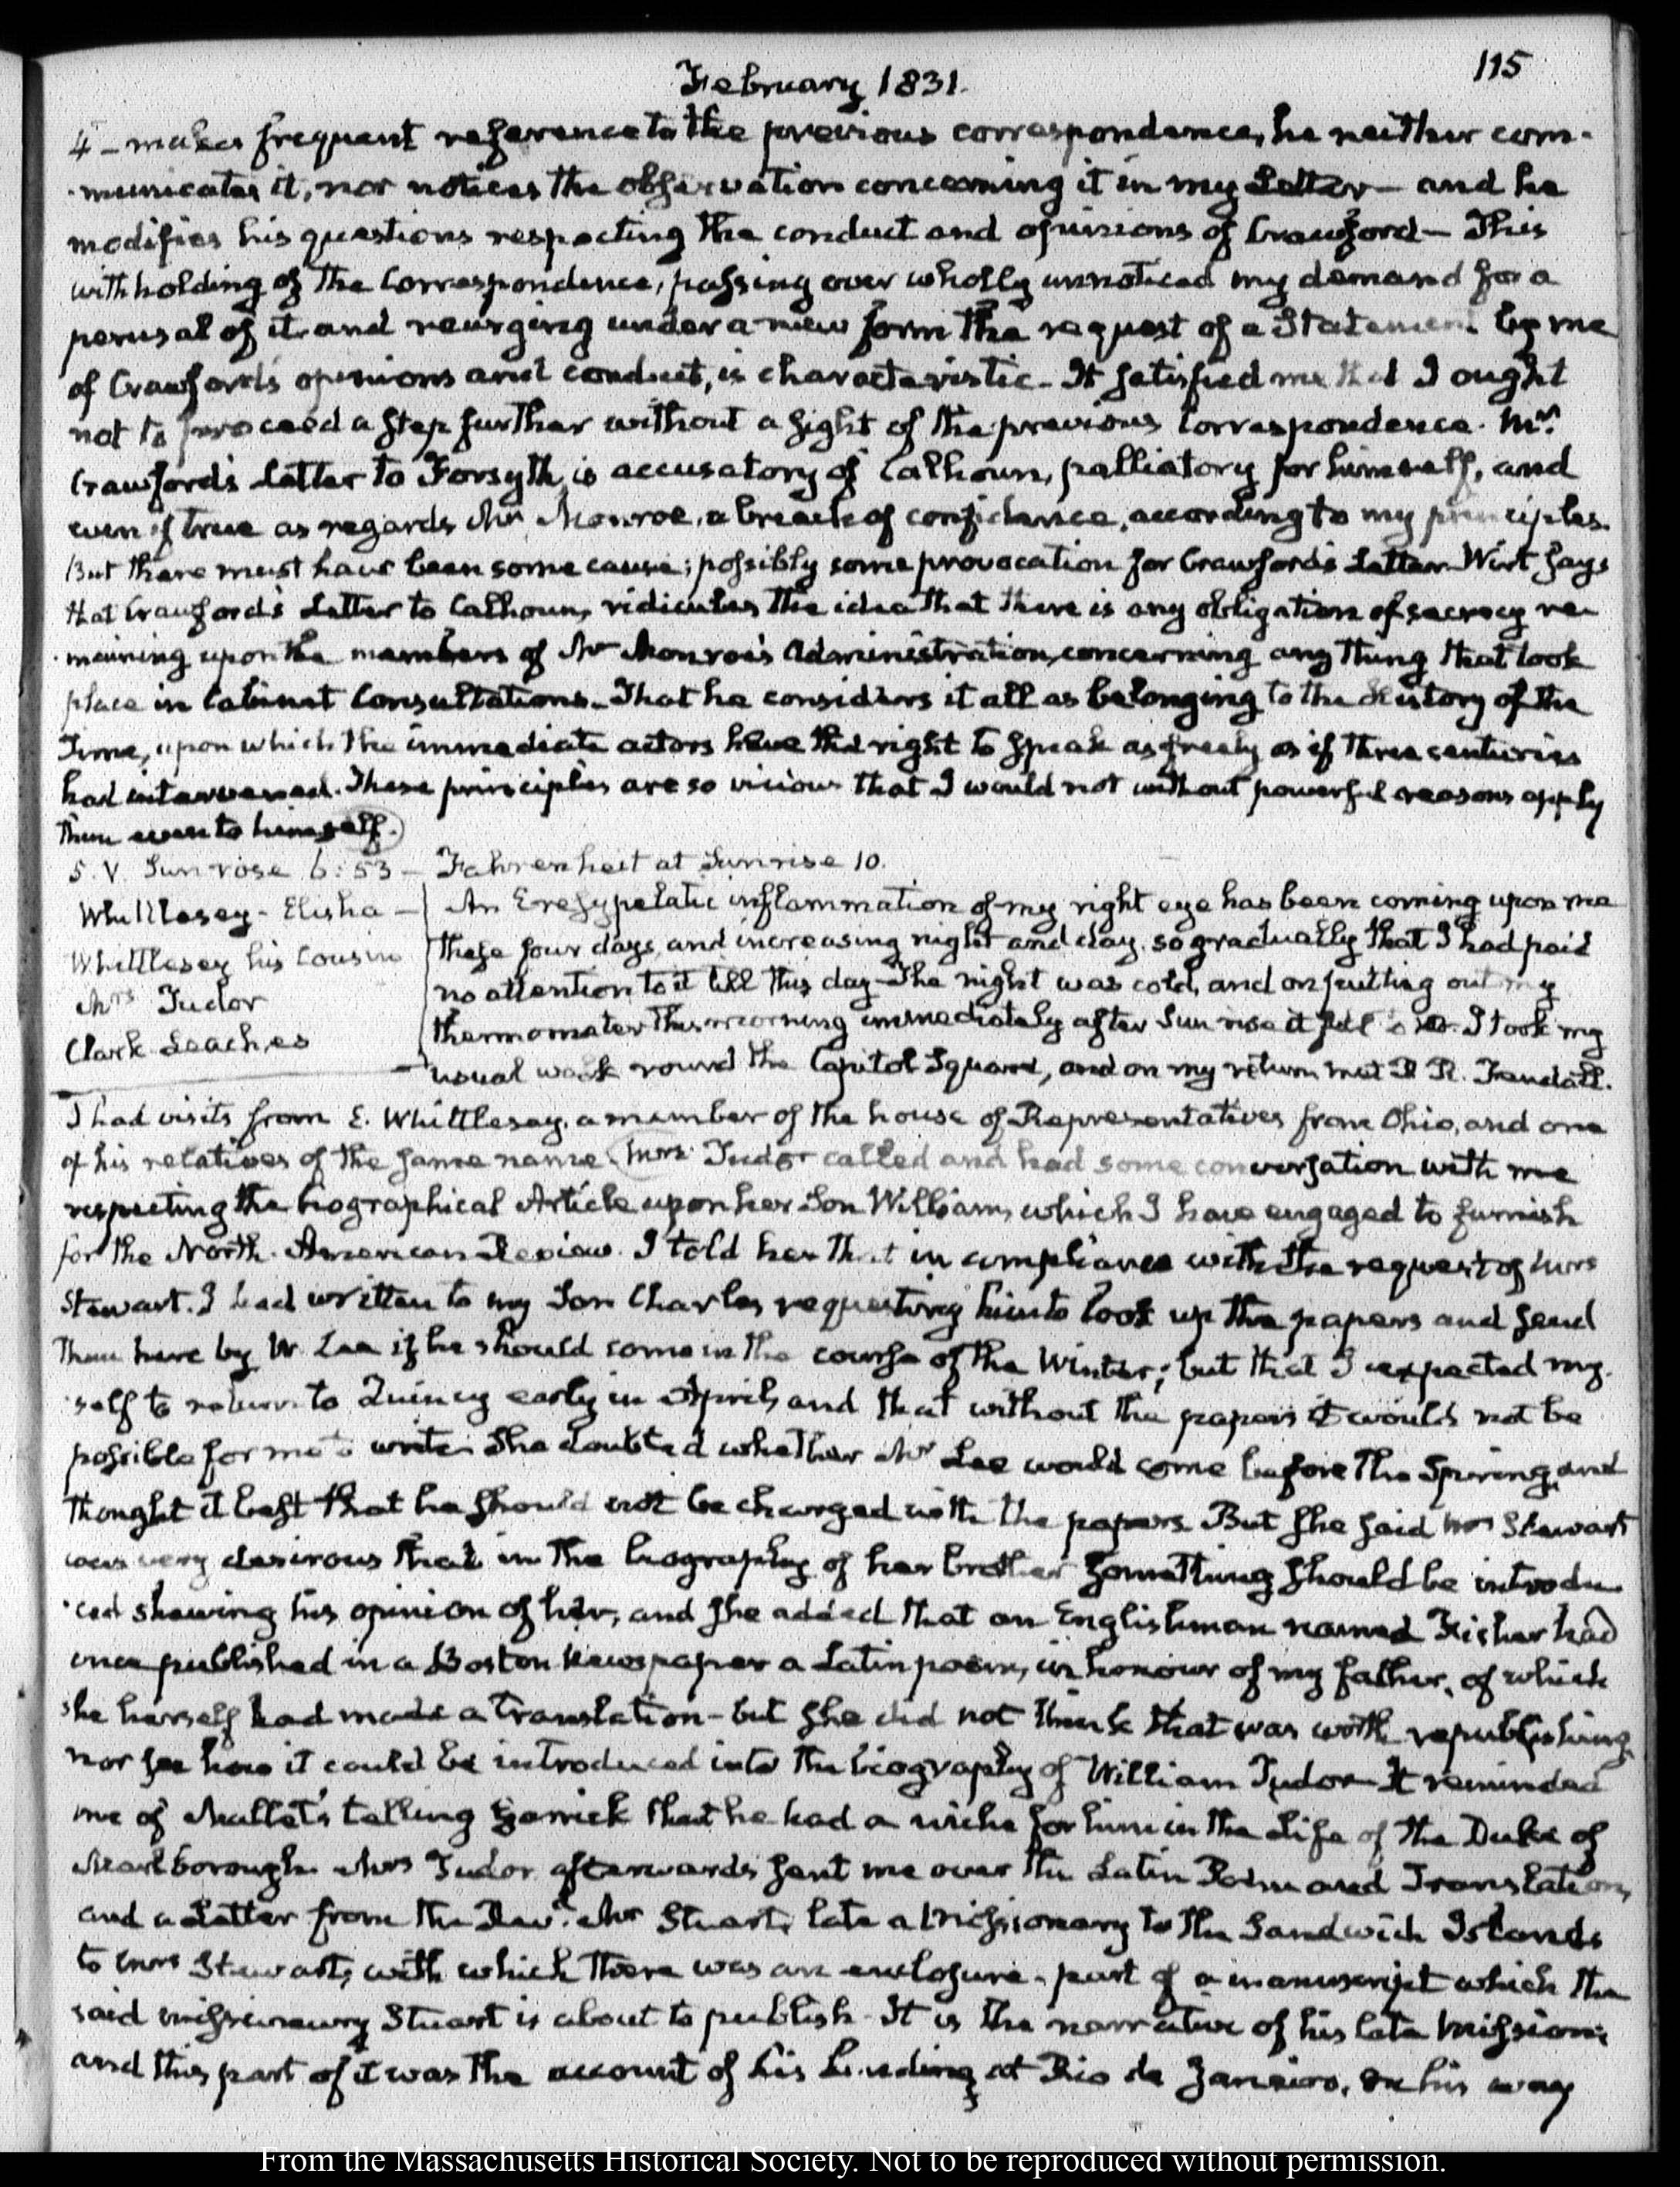 115
February 1831.
4 — makes frequent reference to the previous correspondence, he neither com-
-municates it, nor notices the observation concerning it in my Letter — and he
modifies his questions respecting the conduct and opinions of Crawford — This
withholding of the Correspondence, passing over wholly unnoticed my demand for a
perusal of it and reurging under a new form the request of a Statement by me
of Crawford's opinions and conduct, is characteristic — It satisfied me that I ought
not to proceed a step further without a sight of the previous Correspondence. Mr.
Crawford's Letter to Forsyth, is accusatory of Calhoun, palliatory for himself, and
even if true as regards Mr Monroe, a breach of confidence, according to my principles.
But there must have been some cause; possibly some provocation for Crawford's Letter. Wirt says
that Crawford's Letter to Calhoun, ridicules the idea that there is any obligation of secrecy re-
-maining upon the members of Mr Monroe's Administration, concerning any thing that took
place in Cabinet Consultations. That he considers it all as belonging to the History of the
Time, upon which the immediate actors have the right to speak as freely as if three centuries
had intervened. These principles are so vicious that I would not without powerful reasons apply
them even to himself.
5. V. Sun rose 6:53 — Fahrenheit at Sunrise 10.
Whittlesey — Elisha — An Erysipelatic inflammation of my right eye has been coming upon me
Whittlesey his Cousin these four days, and increasing night and day, so gradually that I had paid
Mrs Tudor no attention to it till this day — The night was cold, and on putting out my
Clark Leaches thermometer this morning immediately after Sun rise it fell to 10. I took my
— usual walk round the Capitol Square, and on my return met Trundall.
I had visits from E. Whittlesey, a member of the house of Representatives from Ohio, and one
of his relatives of the same name. Mrs Tudor called and had some conversation with me
respecting the biographical Article upon her Son William, which I have engaged to furnish
for the North American Review. I told her that in compliance with the request of Mrs
Stewart. I had written to my Son Charles, requesting him to look up the papers and send
them here by Mr Lee if he should come in the course of the Winter; but that I expected my-
-self to return to Quincy early in April, and that without the papers it would not be
possible for me to write. She doubted whether Mr Lee would come before the Spring, and
thought it best that he should not be charged with the papers. But she said Mrs Stewart
was very desirous that in the biography of her brother something should be introdu-
-ced shewing his opinion of her, and she added that an Englishman named Fisher had
once published in a Boston Newspaper a Latin poem, in honour of my father, of which
she herself had made a translation — but she did not think that was worth republishing,
nor see how it could be introduced into the biography of William Tudor — It reminded
me of Mallet's telling Garrick that he had a niche for him in the Life of the Duke of
Marlborough. Mrs Tudor afterwards sent me over the Latin Poem and Translation,
and a Letter from the Revd. Mr Stuart, late a Missionary to the Sandwich Islands
to Mrs Stewart, with which there was an enclosure, part of a manuscript which the
said missionary Stuart is about to publish. It is the narrative of his late Mission;
and this part of it was the account of his landing at Rio de Janeiro, on his way
From the Massachusetts Historical Society. Not to be reproduced without permission.